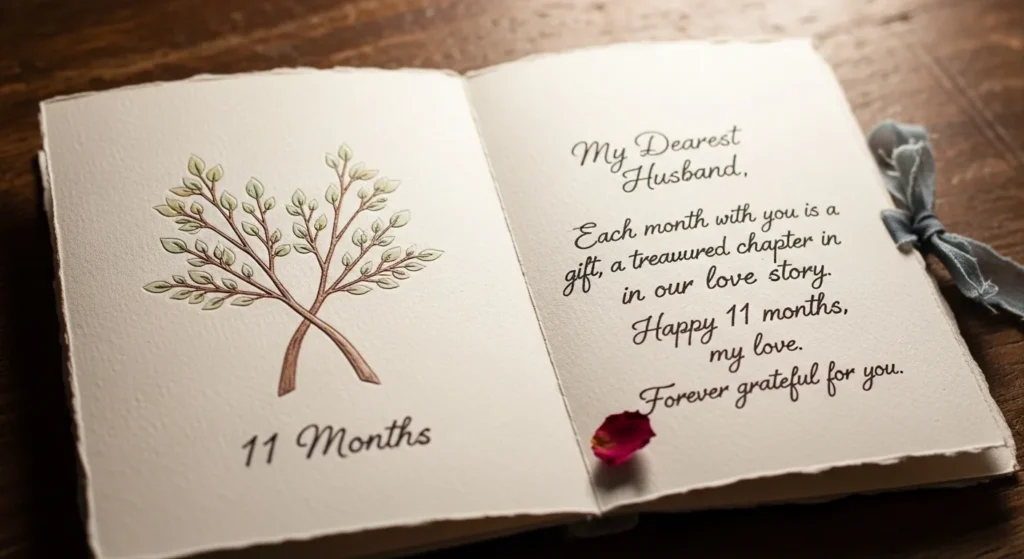 11 Months
My Dearest
Husband,
Each month with you is a
gift, a treauured chapter in
in our love story.
Happy 11 months,
my love.
Forever grateful for you.